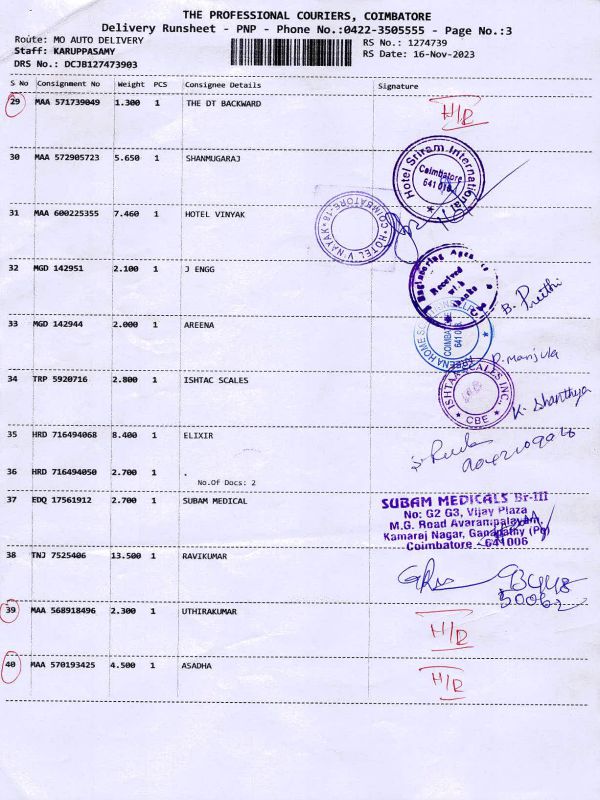 THE PROFESSIONAL COURIERS, COIMBATORE
Delivery Runsheet - PNP - Phone No.:0422-3505555 - Page No.:3
Route: MO AUTO DELIVERY
RS No.: 1274739
Staff: KARUPPASAMY
RS Date: 16-Nov-2023
DRS No.: DCJB127473903
S No Consignment No Weight PCS Consignee Details Signature
29 MAA 571739049 1.300 1 THE DT BACKWARD H/R
30 MAA 572905723 5.650 1 SHANMUGARAJ
Hotel Sriram International
Coimbatore
641 018
31 MAA 600225355 7.460 1 HOTEL VINYAK
HOTEL VINAYAK COIMBATORE-18
32 MGD 142951 2.100 1 J ENGG
Engineering
Received
with
thanks
B. Preethi
33 MGD 142944 2.000 1 AREENA
D. Manjula
34 TRP 5920716 2.800 1 ISHTAC SCALES
ISHTAR SCALES INC.,
CBE
K. Shanthya
35 HRD 716494068 8.400 1 ELIXIR
36 HRD 716494050 2.700 1 .
No.Of Docs: 2
37 EDQ 17561912 2.700 1 SUBAM MEDICAL
SUBAM MEDICALS Br-III
No: G2 G3, Vijay Plaza
M.G. Road Avarampalayam,
Kamaraj Nagar, Ganapathy (Po)
Coimbatore - 641006
38 TNJ 7525406 13.500 1 RAVIKUMAR
93448
50062
39 MAA 568918496 2.300 1 UTHIRAKUMAR H/R
40 MAA 570193425 4.500 1 ASADHA H/R